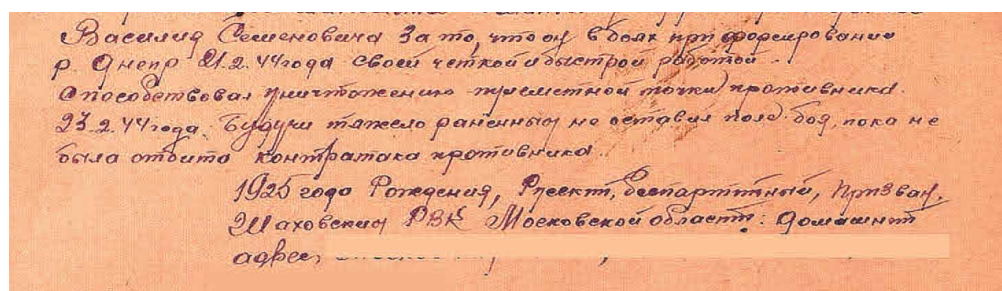 Василия Семеновича За то, что он в боях при форсировании
р. Днепр 21.2.44 года своей четкой и быстрой работой
способствовал уничтожению пулеметной точки противника.
23.2.44 года. Будучи тяжело раненным не оставил поле боя, пока не
была отбита контратака противника.
1925 года Рождения, Русский, беспартийный, призван.
Шаховским РВК Московской области: домашний
адрес,